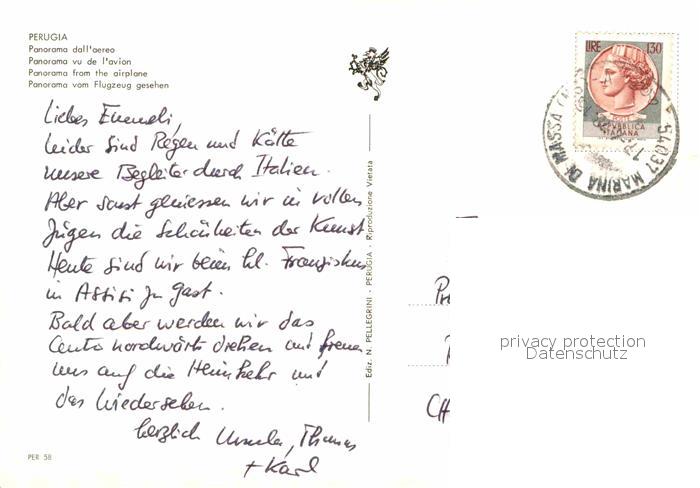 PERUGIA
Panorama dall'aereo
Panorama vu de l'avion
Panorama from the airplane
Panorama vom Flugzeug gesehen
LIRE 130
REPUBBLICA
ITALIANA
54037 MARINA DI MASSA
Liebes
leider sind Regen und Kälte
unsere Begleiter durch Italien.
Aber sonst geniessen wir in vollen
Zügen die Schönheiten der Kunst
Heute sind wir beim hl. Franziskus
in Assisi zu Gast.
Bald aber werden wir das
nordwärts drehen und freuen
uns auf die Heimkehr und
das Wiedersehen.
herzlich Ursula, Thomas
+ Karl
Ediz. N. PELLEGRINI - PERUGIA - Riproduzione Vietata
CH
privacy protection
Datenschutz
PER 58